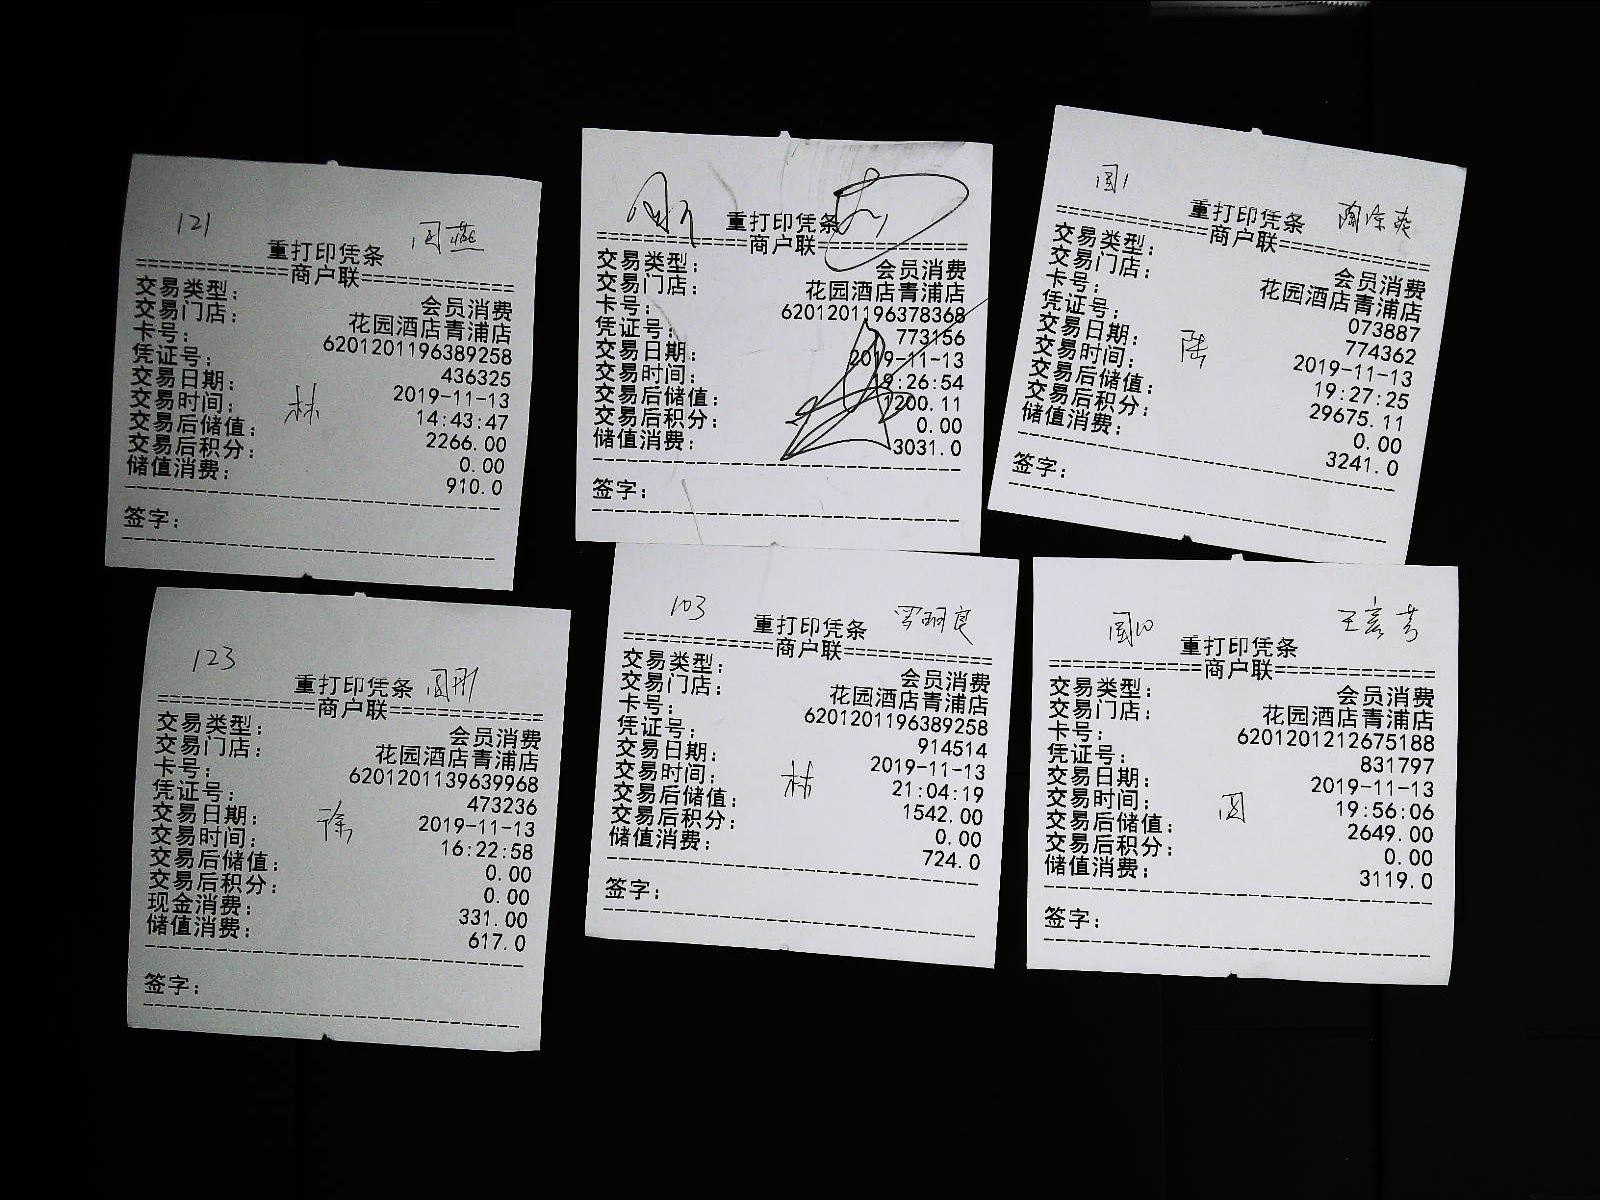 121
重打印凭条
======商户联======
交易类型：
会员消费
交易门店：
花园酒店青浦店
卡号：
6201201196389258
凭证号：
436325
交易日期：
2019-11-13
交易时间：
14:43:47
交易后储值：
2266.00
交易后积分：
0.00
储值消费：
910.0
林
签字：
重打印凭条
======商户联======
交易类型：
会员消费
交易门店：
花园酒店青浦店
卡号：
6201201196378368
凭证号：
773156
交易日期：
2019-11-13
交易时间：
19:26:54
交易后储值：
1200.11
交易后积分：
0.00
储值消费：
3031.0
签字：
重打印凭条
======商户联======
交易类型：
会员消费
交易门店：
花园酒店青浦店
卡号：
073887
凭证号：
774362
交易日期：
2019-11-13
交易时间：
19:27:25
交易后储值：
29675.11
交易后积分：
0.00
储值消费：
3241.0
陆
签字：
123
重打印凭条
======商户联======
交易类型：
会员消费
交易门店：
花园酒店青浦店
卡号：
6201201139639968
凭证号：
473236
交易日期：
2019-11-13
交易时间：
16:22:58
交易后储值：
0.00
交易后积分：
0.00
现金消费：
331.00
储值消费：
617.0
徐
签字：
103
重打印凭条
======商户联======
交易类型：
会员消费
交易门店：
花园酒店青浦店
卡号：
6201201196389258
凭证号：
914514
交易日期：
2019-11-13
交易时间：
21:04:19
交易后储值：
1542.00
交易后积分：
0.00
储值消费：
724.0
林
签字：
重打印凭条
======商户联======
交易类型：
会员消费
交易门店：
花园酒店青浦店
卡号：
6201201212675188
凭证号：
831797
交易日期：
2019-11-13
交易时间：
19:56:06
交易后储值：
2649.00
交易后积分：
0.00
储值消费：
3119.0
签字：